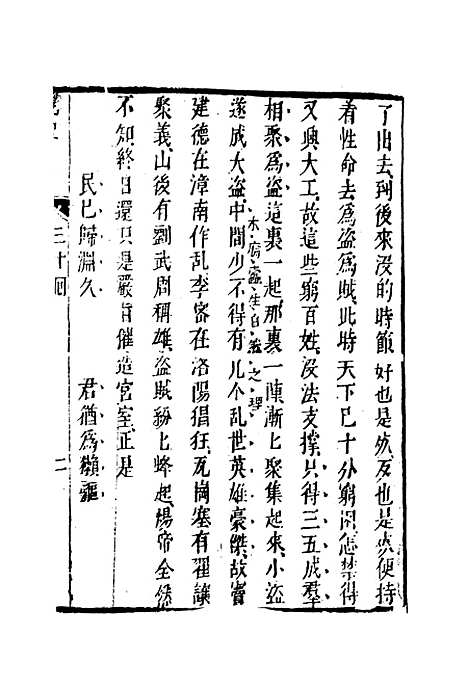 了出去到後來没的時節好也是死歹也是死便持
着性命去爲盗爲賊此時天下已十分窮困怎禁得
又興大工故這些窮百姓没法支撑只得三五成羣
相聚爲盗這裏一起那裏一陣漸匕聚集起來小盗
遂成大盗中間少不得有几个乱世英雄豪傑故竇
木腐蠹生自然之理
建德在漳南作乱李密在洛陽猖狂瓦崗寨有翟讓
聚義山後有劉武周稱雄盗賊紛匕蜂起煬帝全然
不知終日還只是嚴旨催造宫室正是
民已歸淵久 君猶爲獺敺
三十囘 二